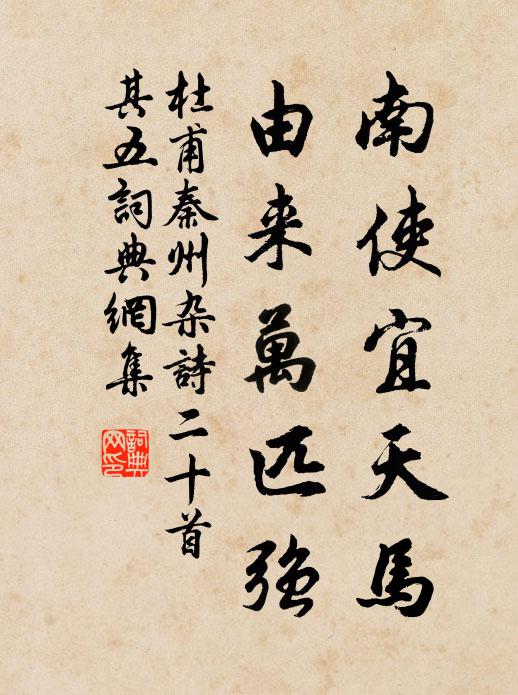 南使宜天馬
由来萬匹強
杜甫秦州杂詩二十首
其五詞典網集
詞典
网印